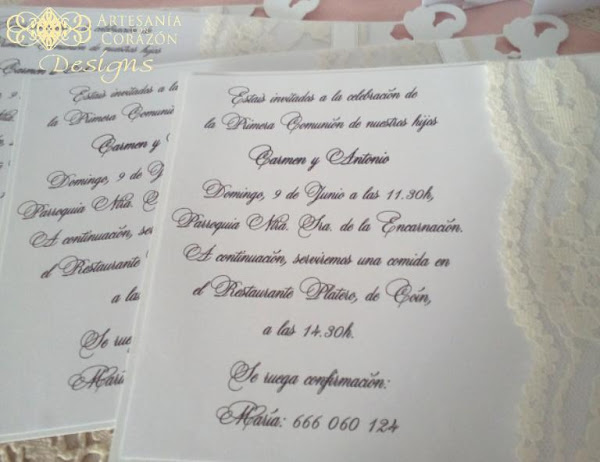 Artesanía
Corazón
Designs
Estais invitados a la celebración de
la Primera Comunión de nuestros hijos
Carmen y Antonio
Domingo, 9 de Junio a las 11.30h,
Parroquia Ntra. Sra. de la Encarnación.
A continuación, serviremos una comida en
el Restaurante Platero, de Coín,
a las 14.30h.
Se ruega confirmación:
María: 666 060 124
celebración de
de nuestros hijos
Estais invitados a la
la Primera Comunión
Carmen y
Domingo, 9 de
Parroquia Ntra.
A continuación,
el Restaurante
a las
Se ruega
María